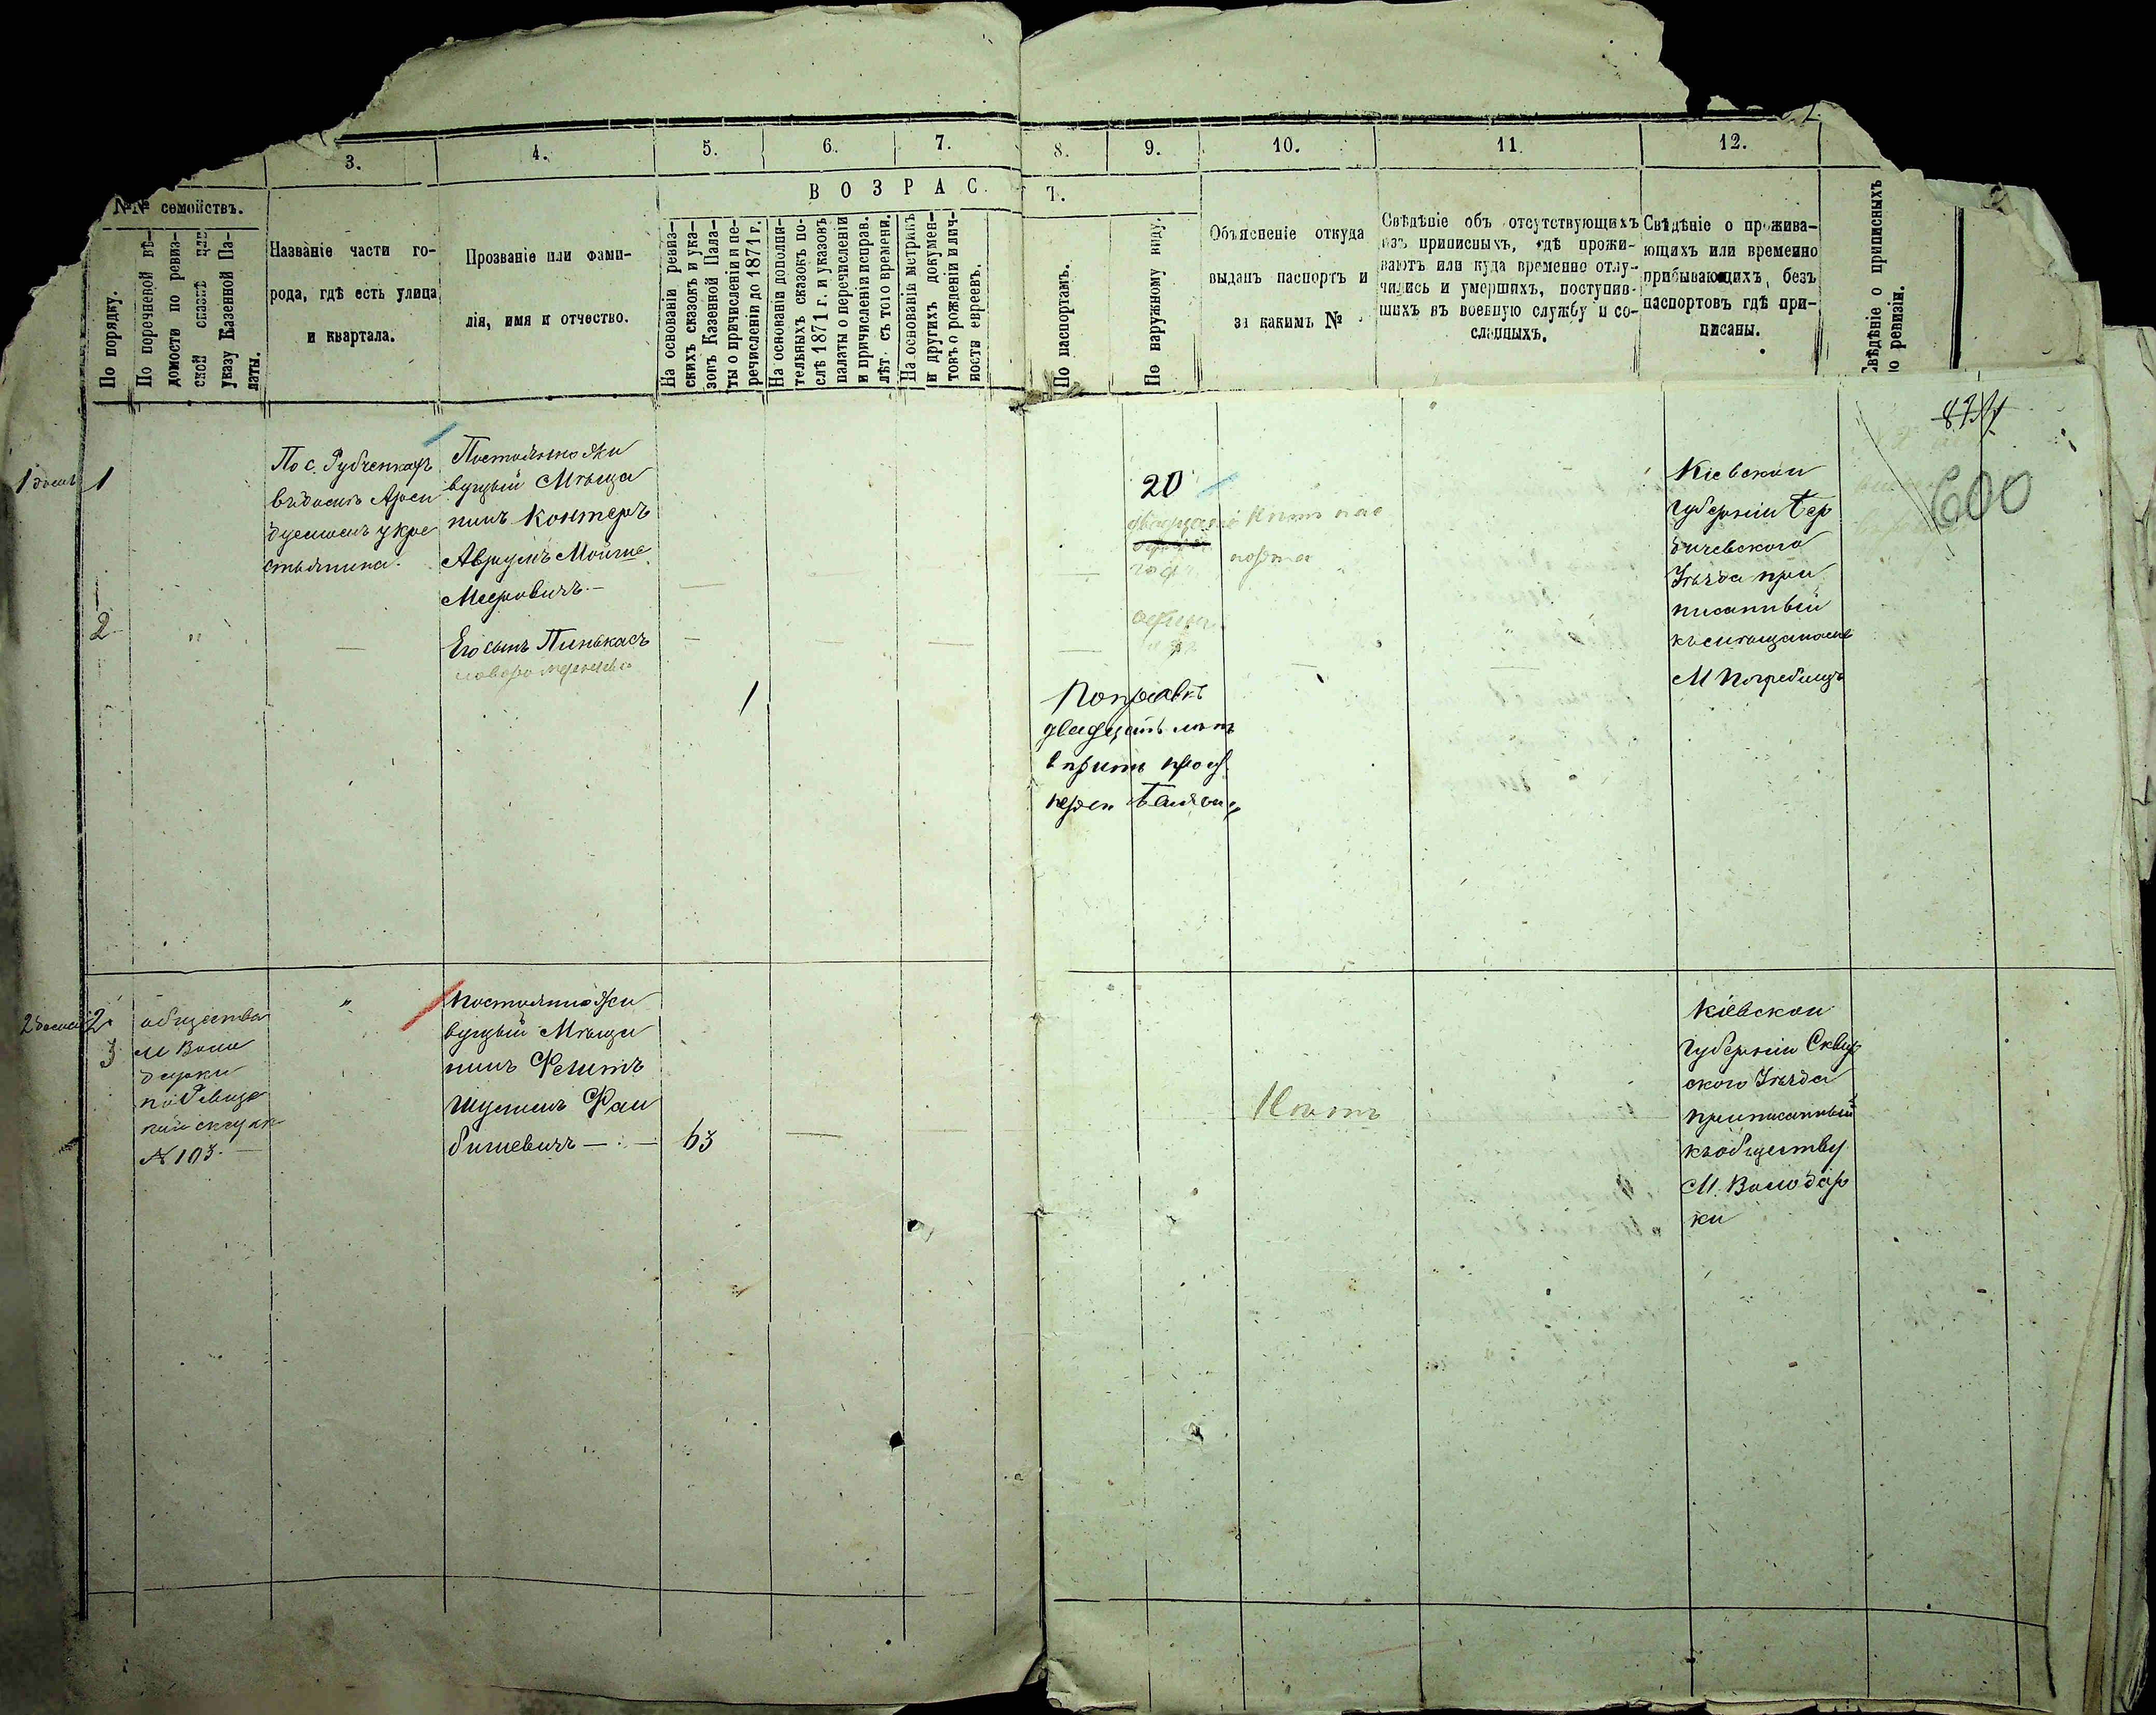 3. 4. 5. 6. 7. 8. 9. 10. 11. 12.
№№ семействъ.
По порядку.
По поречневой вѣ-
домости по ревиз-
ской сказкѣ
указу Казенной Па-
латы.
Названіе части го-
рода, гдѣ есть улица
и квартала.
Прозваніе или фами-
лія, имя и отчество.
ВОЗРАСТ.
На основаніи ревиз-
скихъ сказокъ и ука-
зовъ Казенной Пала-
ты о причисленіи и пе-
речисленіи до 1871 г.
На основаніи дополни-
тельныхъ сказокъ по-
слѣ 1871 г. и указовъ
палаты о перечисленіи
и причисленіи исправ.
лѣт. съ того времени.
На основаніи метрикъ
и другихъ докумен-
товъ о рожденіи и лич-
ности евреевъ.
По паспортамъ.
По наружному виду.
Объясненіе откуда
выданъ паспортъ и
за какимъ №
Свѣдѣніе объ отсутствующихъ
изъ приписныхъ, гдѣ прожи-
ваютъ или куда временно отлу-
чились и умершихъ, поступив-
шихъ въ военную службу и со-
сланныхъ.
Свѣдѣніе о прожива-
ющихъ или временно
прибывающихъ, безъ
паспортовъ гдѣ при-
писаны.
Свѣдѣніе о приписныхъ
по ревизіи.
600
1
По с. Рубченкахъ
въ домѣ
у кре
стьянина.
Постоянно жи
вущый Мѣща
нинъ Контеръ
Аврумъ Мойше
Мееровичъ.—
20
Нѣтъ пас
порта
Кіевской
Губерніи Бер
дичевского
Уѣзда при
писанный
къ
М Погребищъ
2
"
Его сынъ Пинькасъ
1
Поправкѣ
двадцать лѣтъ
2
3
общества
М Воло
дарки
по Ревизс
кой сказк
№ 103.
"
Постоянно жи
вущый Мѣща
нинъ
Шулимъ Фай
бишевичъ
63
Нѣтъ
Кіевской
Губерніи Сквир
ского Уѣзда
приписанный
къ обществу
М. Володар
ки